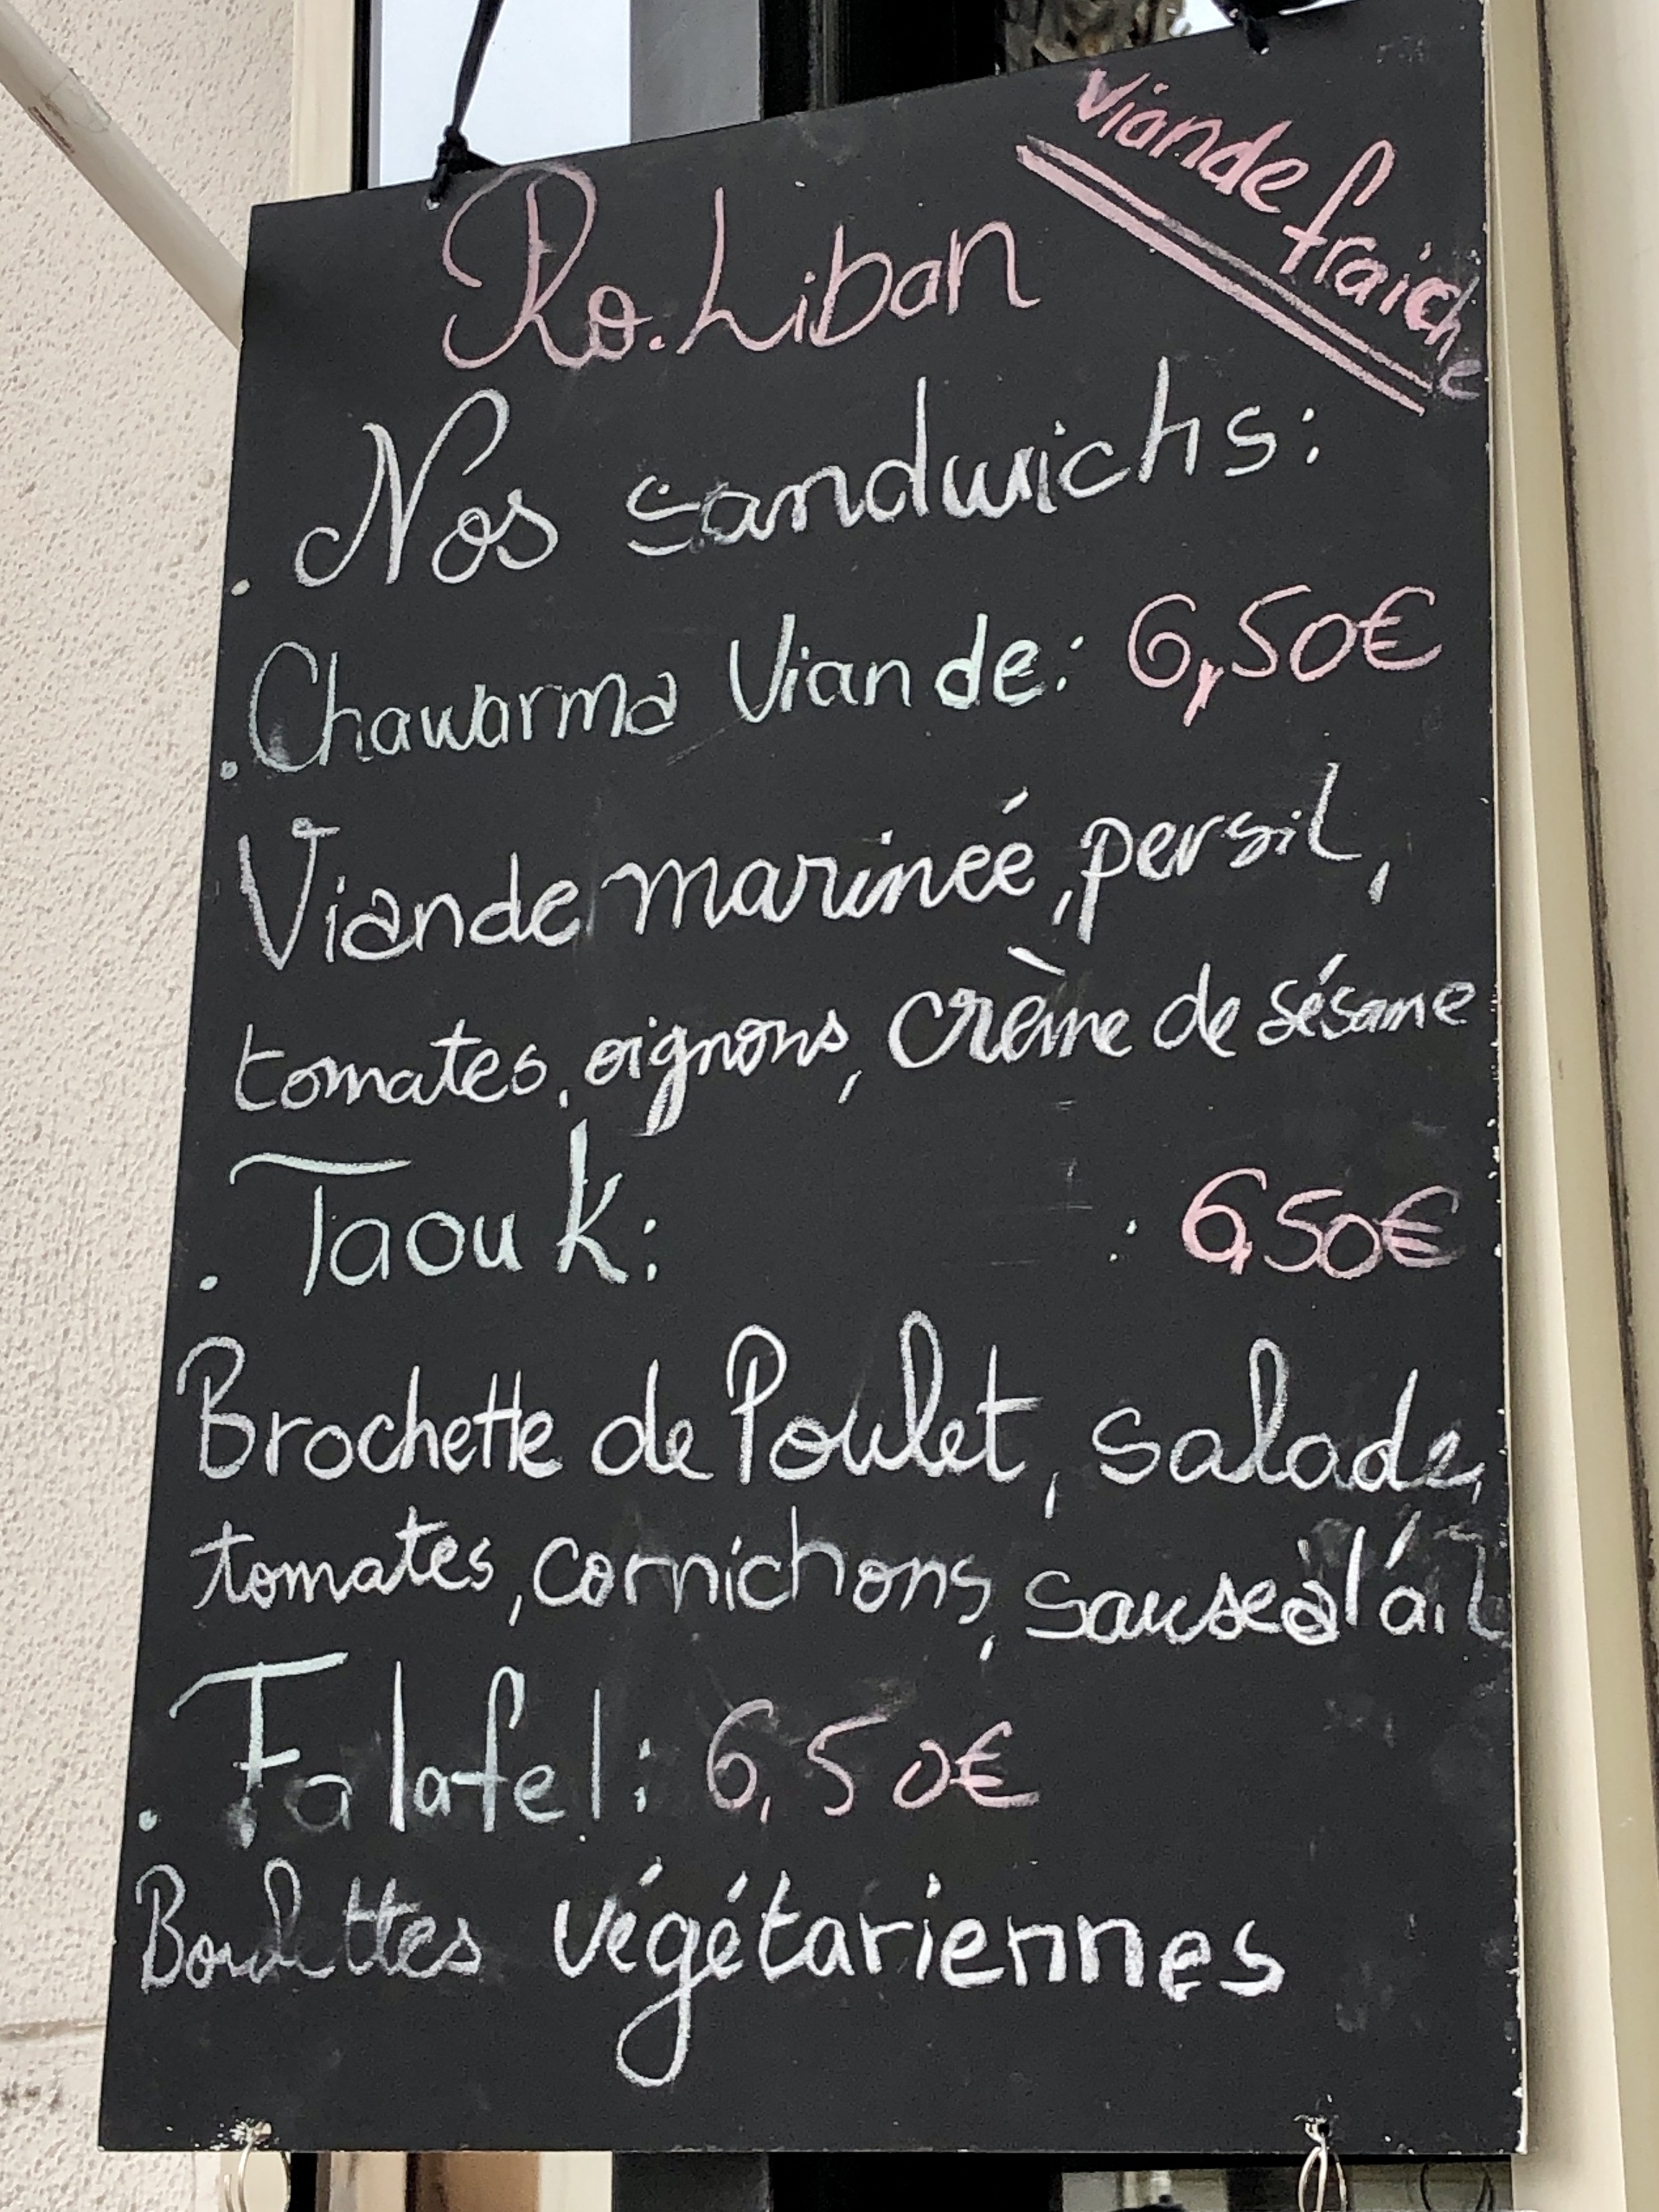 Viande fraiche
Ro. Liban
. Nos sandwichs :
. Chawarma Viande : 6,50€
Viande marineé, persil,
tomates, oignons, crème de sésame
. Taouk : : 6,50€
Brochette de Poulet, salade,
tomates, cornichons, sauseà l'ail
. Falafel : 6,50€
Boulettes végétariennes